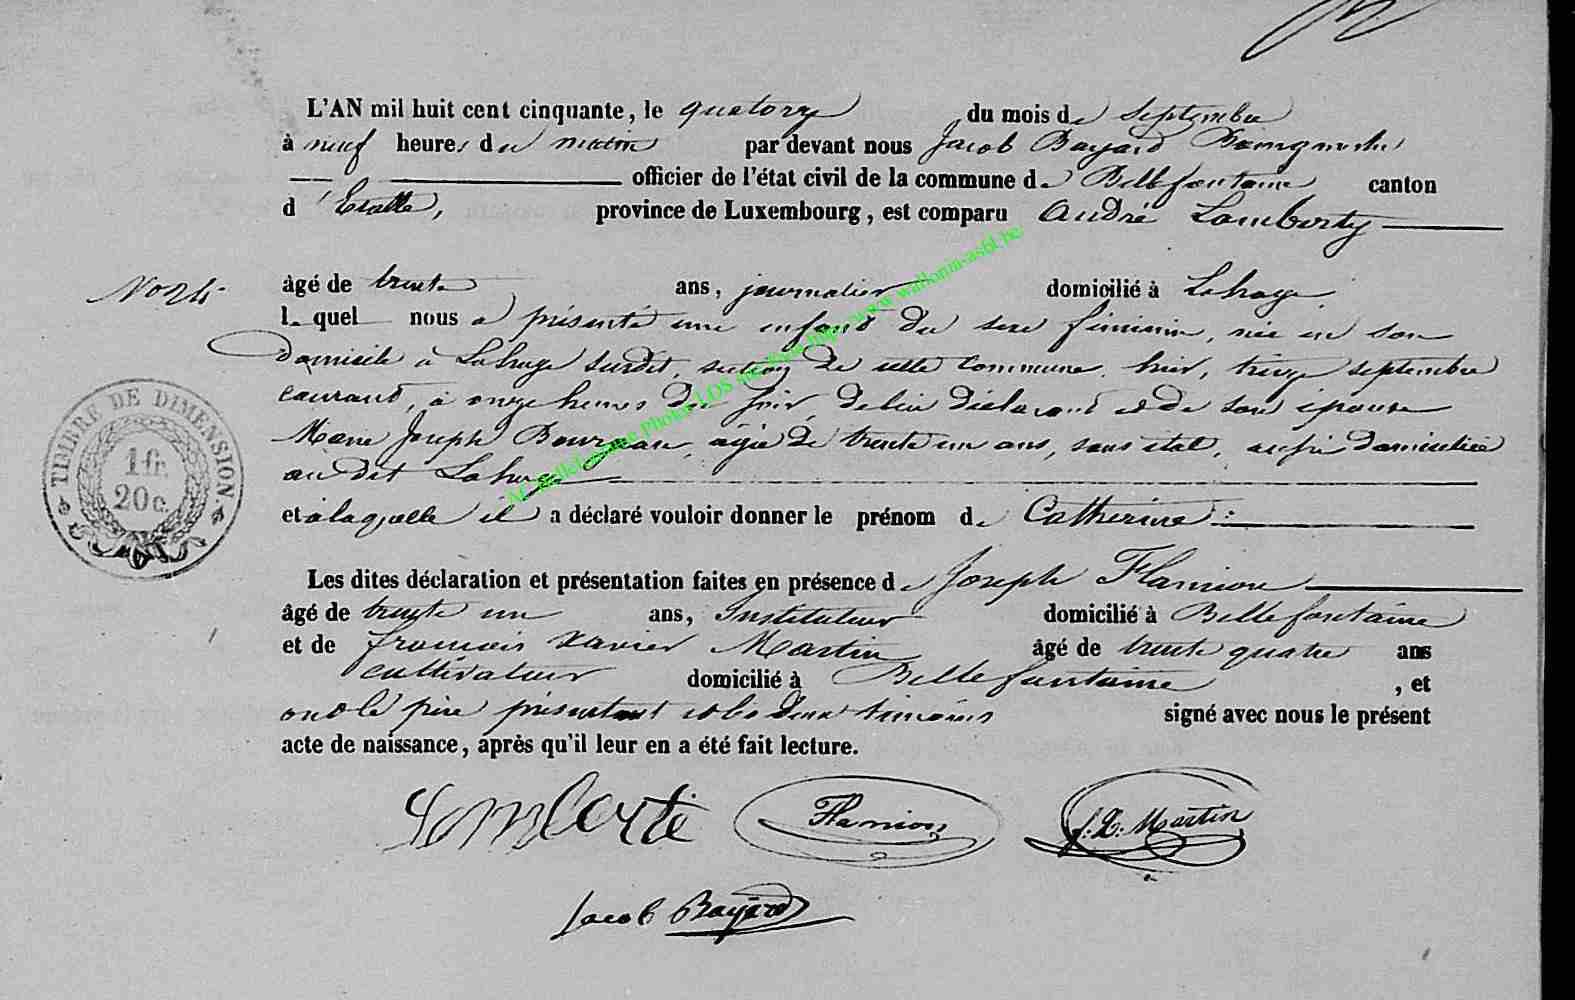 L'AN mil huit cent cinquante, le quatorze du mois de septembre
à neuf heures du matin par devant nous Jacob Bayard Bourgmestre
officier de l'état civil de la commune de Bellefontaine canton
d'Etalle, province de Luxembourg, est comparu André Lamberty
No 24.
âgé de trente ans, journalier domicilié à Lahage,
lequel nous a présenté une enfant du sexe féminin, née en son
domicile à Lahage susdit, section de cette commune, hier, treize septembre
courant, à onze heures du soir, de lui déclarant et de son épouse
Marie Joseph Bourgeau, agée de trente un ans, sans état, aussi domiciliée
au dit Lahage
et à laquelle il a déclaré vouloir donner le prénom de Catherine :
Les dites déclaration et présentation faites en présence de Joseph Flamion
âgé de trente un ans, Instituteur domicilié à Bellefontaine
et de françois Xavier Martin âgé de trente quatre ans
cultivateur domicilié à Bellefontaine, et
ont le père présentant et les deux témoins signé avec nous le présent
acte de naissance, après qu'il leur en a été fait lecture.
Lamberti Flamion f: X: Martin
Jacob Bayard
TIMBRE DE DIMENSION.
1 fr.
20 c.